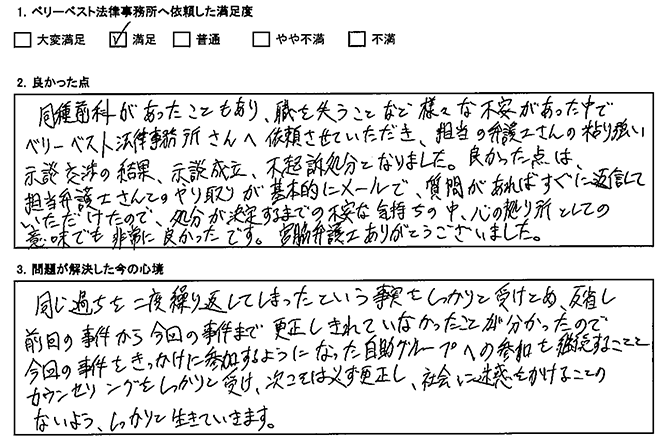 1. ベリーベスト法律事務所へ依頼した満足度
大変満足 満足 普通 やや不満 不満
2. 良かった点
同種前科があったこともあり、職を失うことなど様々な不安があった中で
ベリーベスト法律事務所さんへ依頼させていただき、担当の弁護士さんの粘り強い
示談交渉の結果、示談成立、不起訴処分となりました。良かった点は、
担当弁護士さんとのやり取りが基本的にメールで、質問があればすぐに返信して
いただけたので、処分が決定するまでの不安な気持ちの中、心の拠り所としての
意味でも非常に良かったです。宮脇弁護士ありがとうございました。
3. 問題が解決した今の心境
同じ過ちを二度繰り返してしまったという事実をしっかりと受けとめ、反省し
前回の事件から今回の事件まで更正しきれていなかったことが分かったので
今回の事件をきっかけに参加するようになった自助グループへの参加を継続することと
カウンセリングをしっかりと受け、次こそは必ず更正し、社会に迷惑をかけることの
ないよう、しっかりと生きていきます。